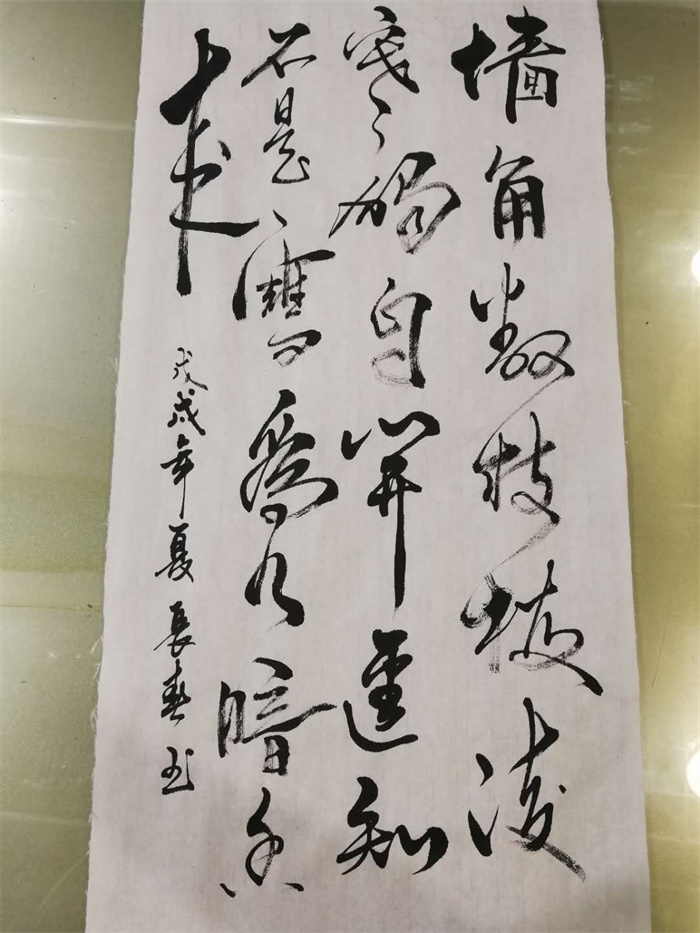 墙角数枝梅凌
寒獨自開遥知
不是雪為有暗香
来
戊戌年夏長春书